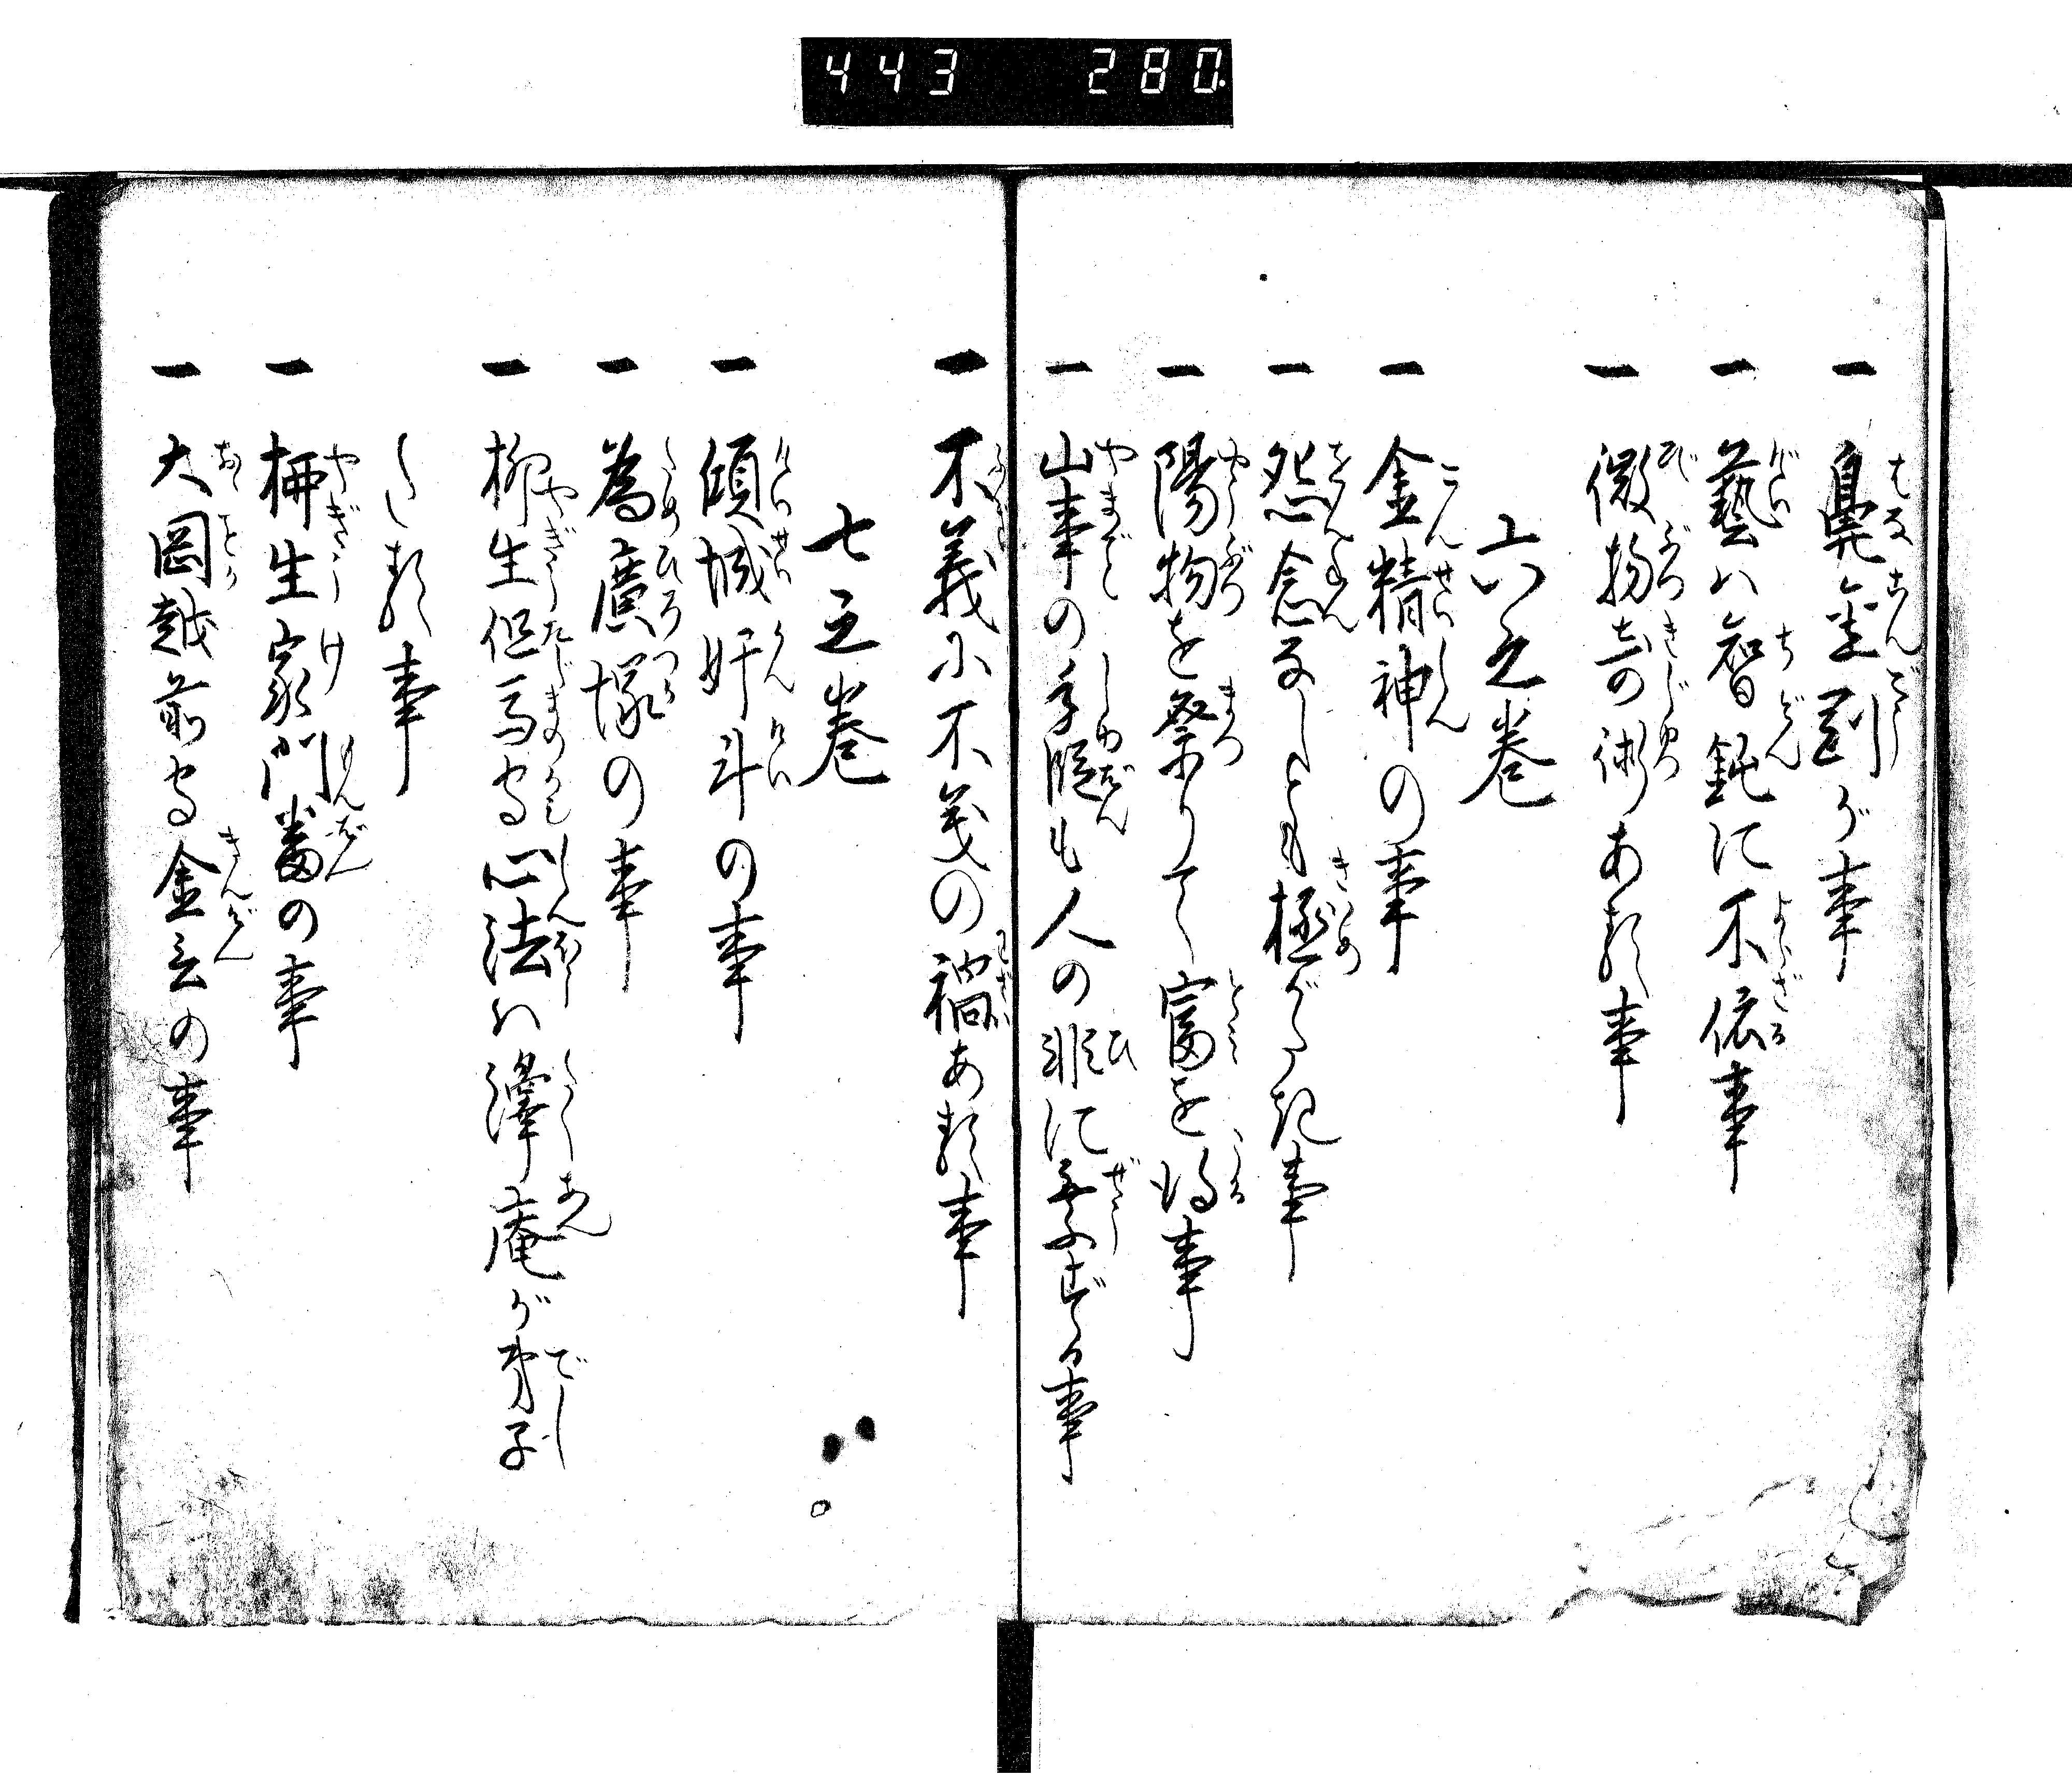 443 280.
一 鼻金剛が事
一 藝ハ智鈍に不依事
一 微物奇術ある事
六之巻
一 金精神の事
一 怨念なしとも極がたき事
一 陽物を祭りて富を得事
一 山事の手段も人の非に乗ずる事
一 不義に不義の禍ある事
七之巻
一 傾城奸斗の事
一 為廣塚の事
一 柳生但馬守心法ハ澤庵が弟子
たる事
一 柳生家門番の事
一 大岡越前守金言の事